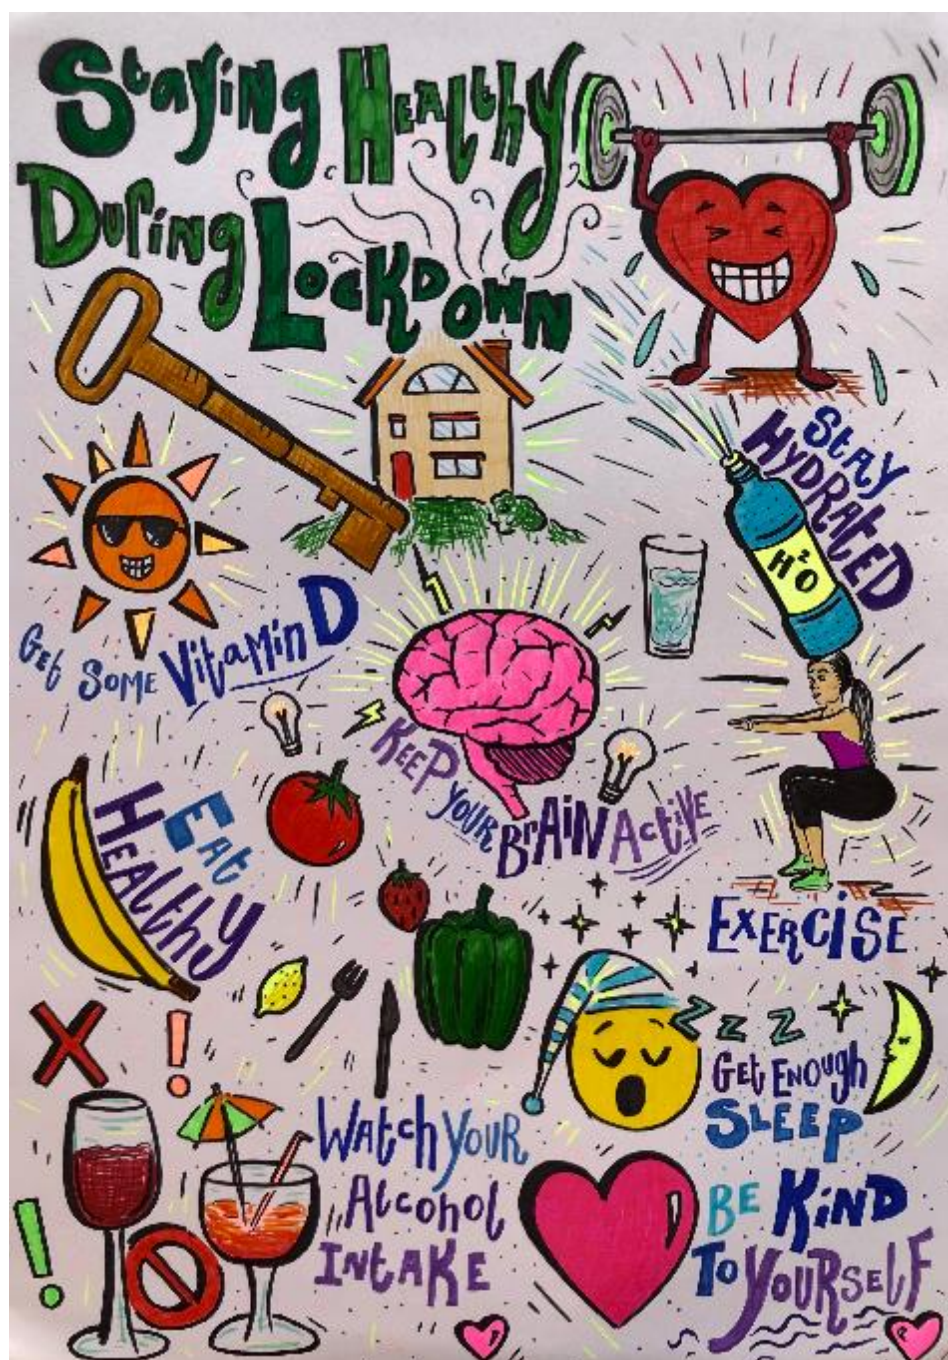 Staying Healthy
During Lockdown
Stay
Hydrated
H²O
Get Some Vitamin D
Keep
Your
Brain Active
Eat
Healthy
Exercise
Z Z Z
Get Enough
Sleep
Watch Your
Alcohol
Intake
Be Kind
To Yourself